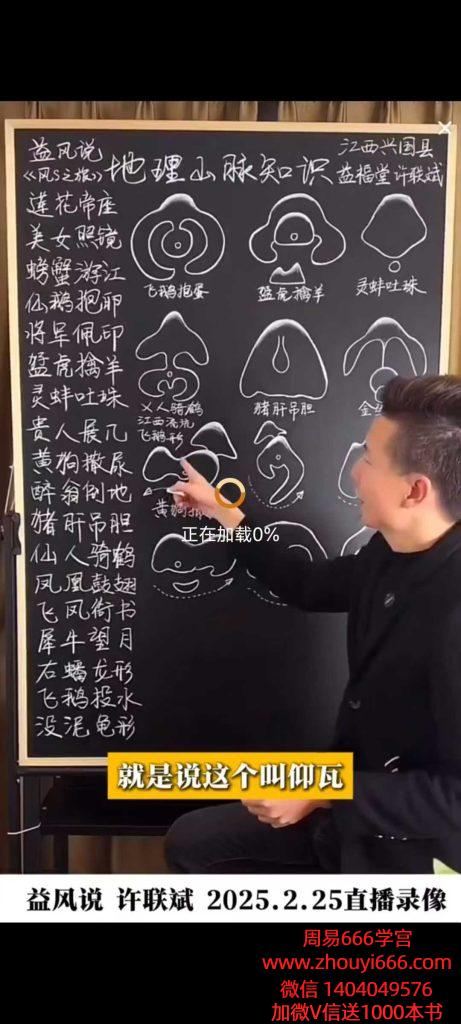 益风说
《风S之旅》
地理山脉知识
江西兴国县
益福堂许联斌
莲花帝座
美女照镜
螃蟹游江
仙鹅抱卵
将军佩印
猛虎擒羊
灵蚌吐珠
贵人展几
黄狗撒尿
醉翁倒地
猪肝吊胆
仙人骑鹤
凤凰鼓翅
飞凤衔书
犀牛望月
右蟠龙形
飞鹅投水
没泥龟形
飞鹅抱蛋
猛虎擒羊
灵蚌吐珠
乂人骑鹤
江西
飞鹅形
猪肝吊胆
金
黄狗撒
正在加载0%
就是说这个叫仰瓦
益风说 许联斌 2025.2.25直播录像
周易666学宫
www.zhouyi666.com
微信 1404049576
加微V信送1000本书